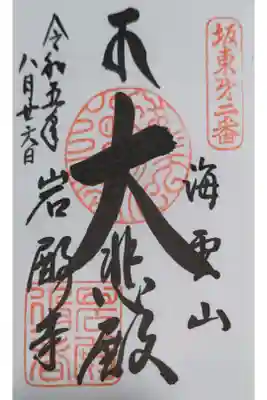 坂東第二番
海雲山
奉
大悲殿
岩殿寺
令和五年
八月廿六日